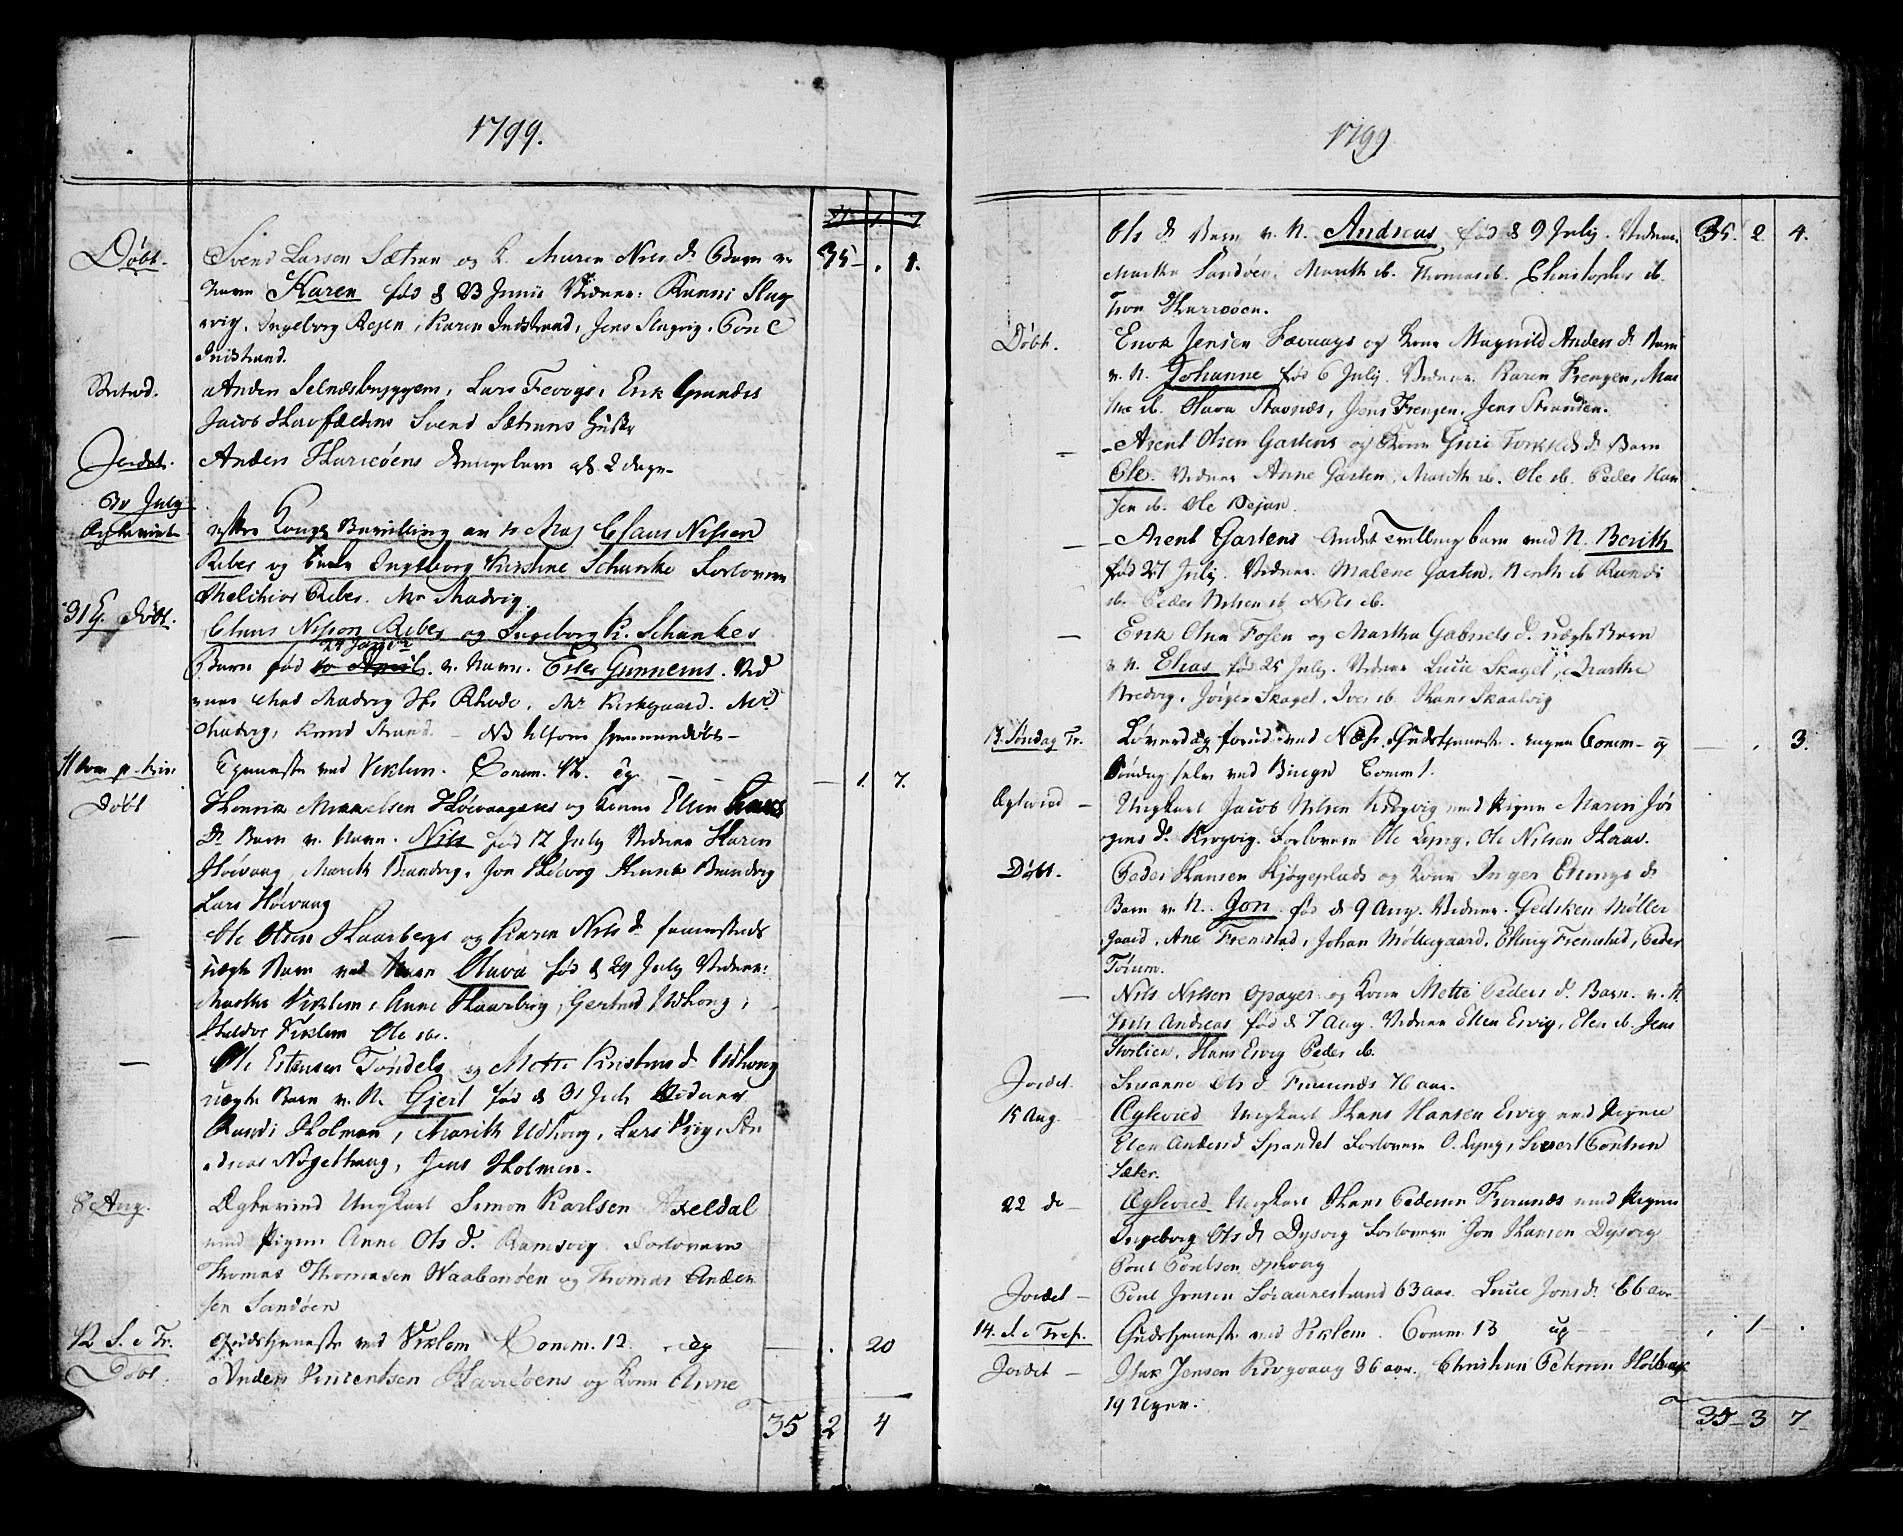 1799.
Døbt. Svend Larsen Sætran og K. Maren Nils d. Barn v. 35 - . 1.
Navn Karen fød d 23 Junii Vidner: Runni Slug
vig, Ingeborg Aejen, Karen Indstrand, Jens Slugvig. Tone
Indstrand.
Anders Selnæsbyggem, Lars Fevogs, Erik Grandes
Jacob Havfældens Svend Sætrans Hustr
Jordet. Anders Harreöens Drengebarn 2 dage
30 July
Ægteviet efter Kongl Bevilling av Claus Nissen
Riber og Ingeborg Kirstine Schanke Forlovere
Melchior Riber. Mr Madvig.
31 Døbt. Claus Nisson Riber og Ingeborg K. Schankes
24 Januar
Barn fød v. Navn. Eiler Gunnerus. Vid
ner Mad Madvig Hr Rhode, Mr Kirkgaard. Mr
Madvig, Knud Strand. - NB hjemmedøbt -
Tjeneste ved Viklem. Comm. 42. og - - - 1. 7.
Døbt Henrik Mikkelsen Høivaagens og Kone Elen
D. Barn v. Navn. Nils fød 12 July Vidner Karen
Høivaag, Marith Brandvig, Jon Høivog Henrik Brandvig
Lars Høivaag
- Ole Olsen Haarbergs og Karen Nils d.
uægte Barn ved Navn Olava fød d 24 July Vidner:
Marthe Viklem, Anne Haarberg, Gertrud Udhoug,
Haldor Viklem Ole ib.
- Ole Estensen Tøndels og Mette Kristens d. Udhoug
uægte Barn v. N. Gjert fød d 31 July Vidner
Randi Holmen, Marith Udhoug, Lars An
dreas Nøgelhaug, Jens Holmen.
8 Aug. Ægtevied Ungkarl Simon Karlsen Axeldal
med Pigen Anne Ols d. Ramsvig. Forlovere
Thomas Thomasen Waabenøen og Thomas Anders
sen Sandöen
12 S. e Tr. Gudstjeneste ved Viklem Comm. 12. og - . 20
Døbt. Anders Vincentsen Harreöens og Kone Anne
35 2 4
1799
Ols d. Barn v. N. Andreas, fød d 9 July. Vidner. 35. 2 4.
Martha Sandøen, Marith ib. Thomas ib. Christopher ib.
Tron Harreöen.
Døbt. Enok Jensen Fævaags og Kone Magnild Anders d. Barn
v. N. Johanne fød 6 July. Vidner. Karen Frengen, Mar
the ib. Olava Stavnæs, Jens Frengen, Jens Stranden.
- Arent Olsen Gartens og Kone Guri Torkilds d. Barn
Ole. Vidner Anne Garten, Marith ib. Ole ib. Peder Han
sen ib. Ole Dejan.
- Arent Gartens Andet Tvillingbarn ved N. Berith
fød 27 July. Vidner. Malene Garten, Berith ib Randi
ib. Peder Nilsen ib, Nils ib.
- Erik Olsen Fosen og Martha Gabriels d. uægte Barn
v. N. Elias fød 25 July. Vidner Lucie Skaget, Marthe
Bredvig, Jørgen Skaget, Iver ib. Hans Skaalvig
13. Søndag Tr. Løverdag forud ved Næs, Gudstjeneste. ingen Comm. og - . 3.
Søndag selv ved Biugn Comm 1.
Ægteviid - Ungkarl Jacob Nilsen Krogvig med Pigen Maren Jør
gens d. Krogvig. Forlovere Ole Lyng, Ole Nilsen Haar.
Døbt. Peder Hansen Kjøgeplads og Kone Inger Ellings d
Barn v. N. Jon. fød d 9 Aug. Vidner. Gedsken Møller
gaard, Ane Fremstad, Johan Møllegaard, Elling Fremstad, Peder
Törum.
- Nils Nilsen Opager og Kone Mette Peders d. Barn. v. N
Andreas fød d 7 Aug. Vidner Ellen Ervig, Elen ib. Jens
Storlien, Hans Ervig Peder ib.
Jordet. Susanne Ols d. Furunæs 76 aar.
15 Aug. Ægtevied Ungkarl Hans Hansen Ervig med Pigen
Elen Anders d Opandet Forlovere O. Lyng, Sivert Pontsen
Sæter.
22 de - Ægtevied Ungkarl Hans Pedersen Furunæs med Pigen
Ingeborg Ols d. Dysvig Forlovere Jon Hansen Dysvig
Poul Poulsen Ophoug
Jordet - Poul Jonsen Soeannestrand 63 aar. Lucie Jons d. 66 aar
14. S. e Tref. Gudstjeneste ved Viklem. Comm. 13 og - . 1 - .
Jordet - Jensen Krogvaag 36 aar. Christian Petersen
19 Uger.
35 - 3 7